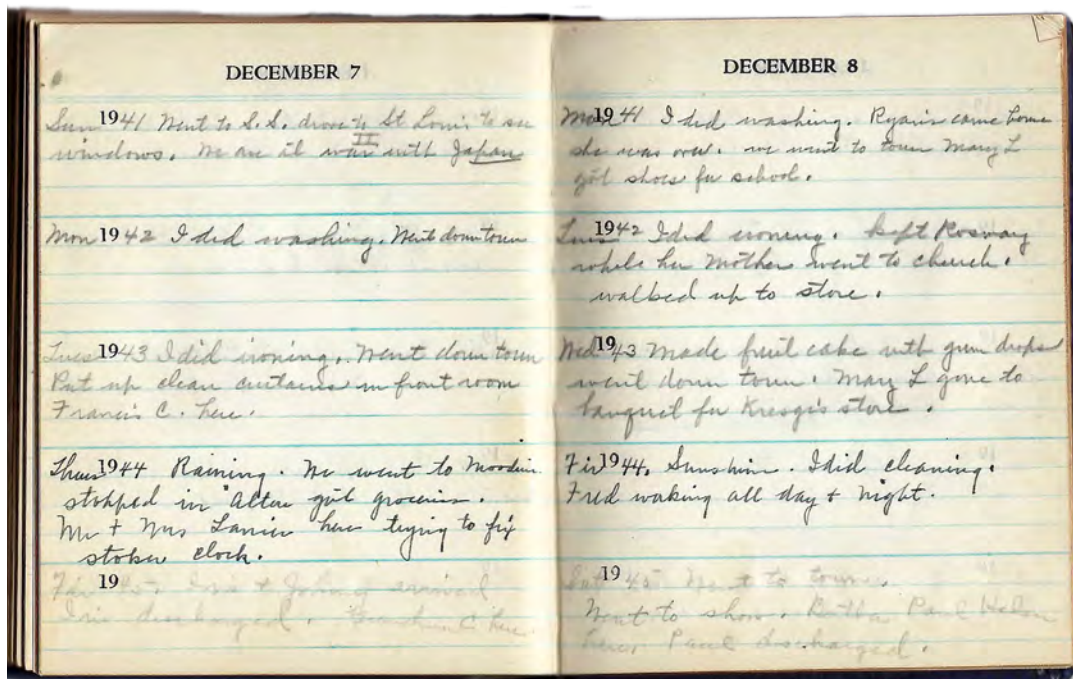 DECEMBER 7
Sun 1941 Went to S.S. drove to St Louis to see
windows. We are at war II with Japan
Mon 1942 I did washing. Went down town
Tues 1943 I did ironing. Went down town
Put up clean curtains in front room
Francis C. here.
Thurs 1944 Raining. We went to
stopped in Alton got groceries.
Mr + Mrs here trying to fix
stoker clock.
Fri 1945 + Johnny arrived
discharged. here.
DECEMBER 8
Mon 1941 I did washing. Ryan's came home
she was over. we went to town Mary L
got shoes for school.
Tues 1942 I did ironing. Kept Rosmary
while her Mother went to church.
walked up to store.
Wed 1943 Made fruit cake with gum drops
went down town. Mary L gone to
banquet for Kresgi's store.
Fri 1944. Sunshine. I did cleaning.
Fred working all day + night.
Sat 1945 Went to town.
Went to show. Paul
here. Paul discharged.